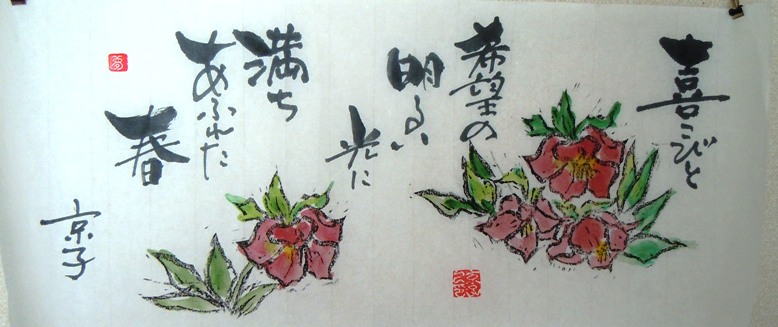 喜こびと
希望の
明るい
光に
満ち
あふれた
春
京子